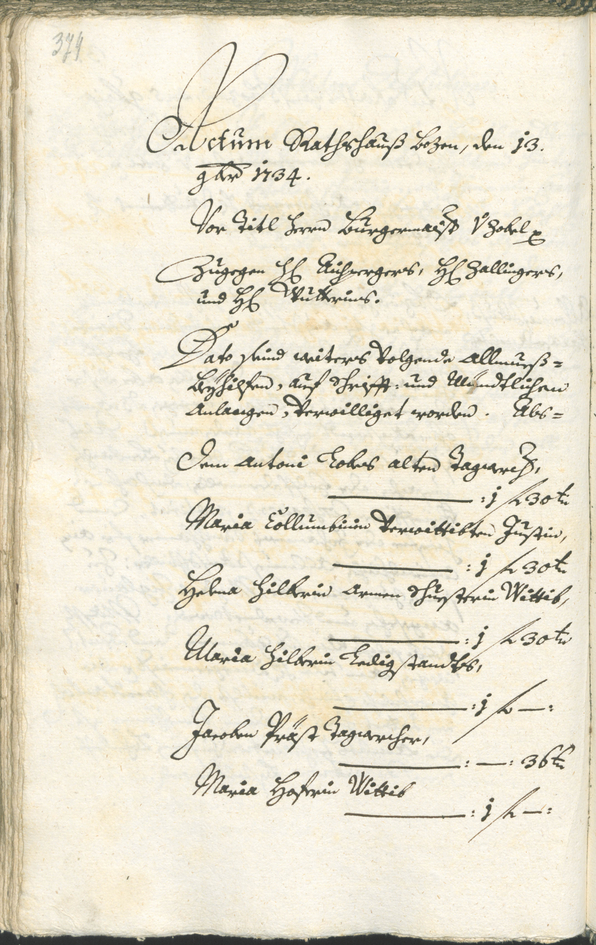 374
Actum Rathshauß Bozen, den 13.
9ber 1734.
Vor Titl Herrn Burgermaister Zobel
Zugegen HE Aufpergers, HE Zallingers,
und HE
Dato seind weiters volgende Allmueß=
Beyhilfen, auf schrifft= und Mündtlichen
Anlangen, verwilliget worden. Als=
Dem Antoni alten Tagwerch,
:1 f 30 kr
Maria Collumbinin verwittibten Justin,
:1 f 30 kr
Helena Hilberin armen Schuesterin Wittib,
:1 f 30 kr
Maria Hilberin Ledigstandts,
:1 f —:
Jacoben Präst Tagwercher,
:—: 36 kr
Maria Hoferin Wittib
:1 f —: